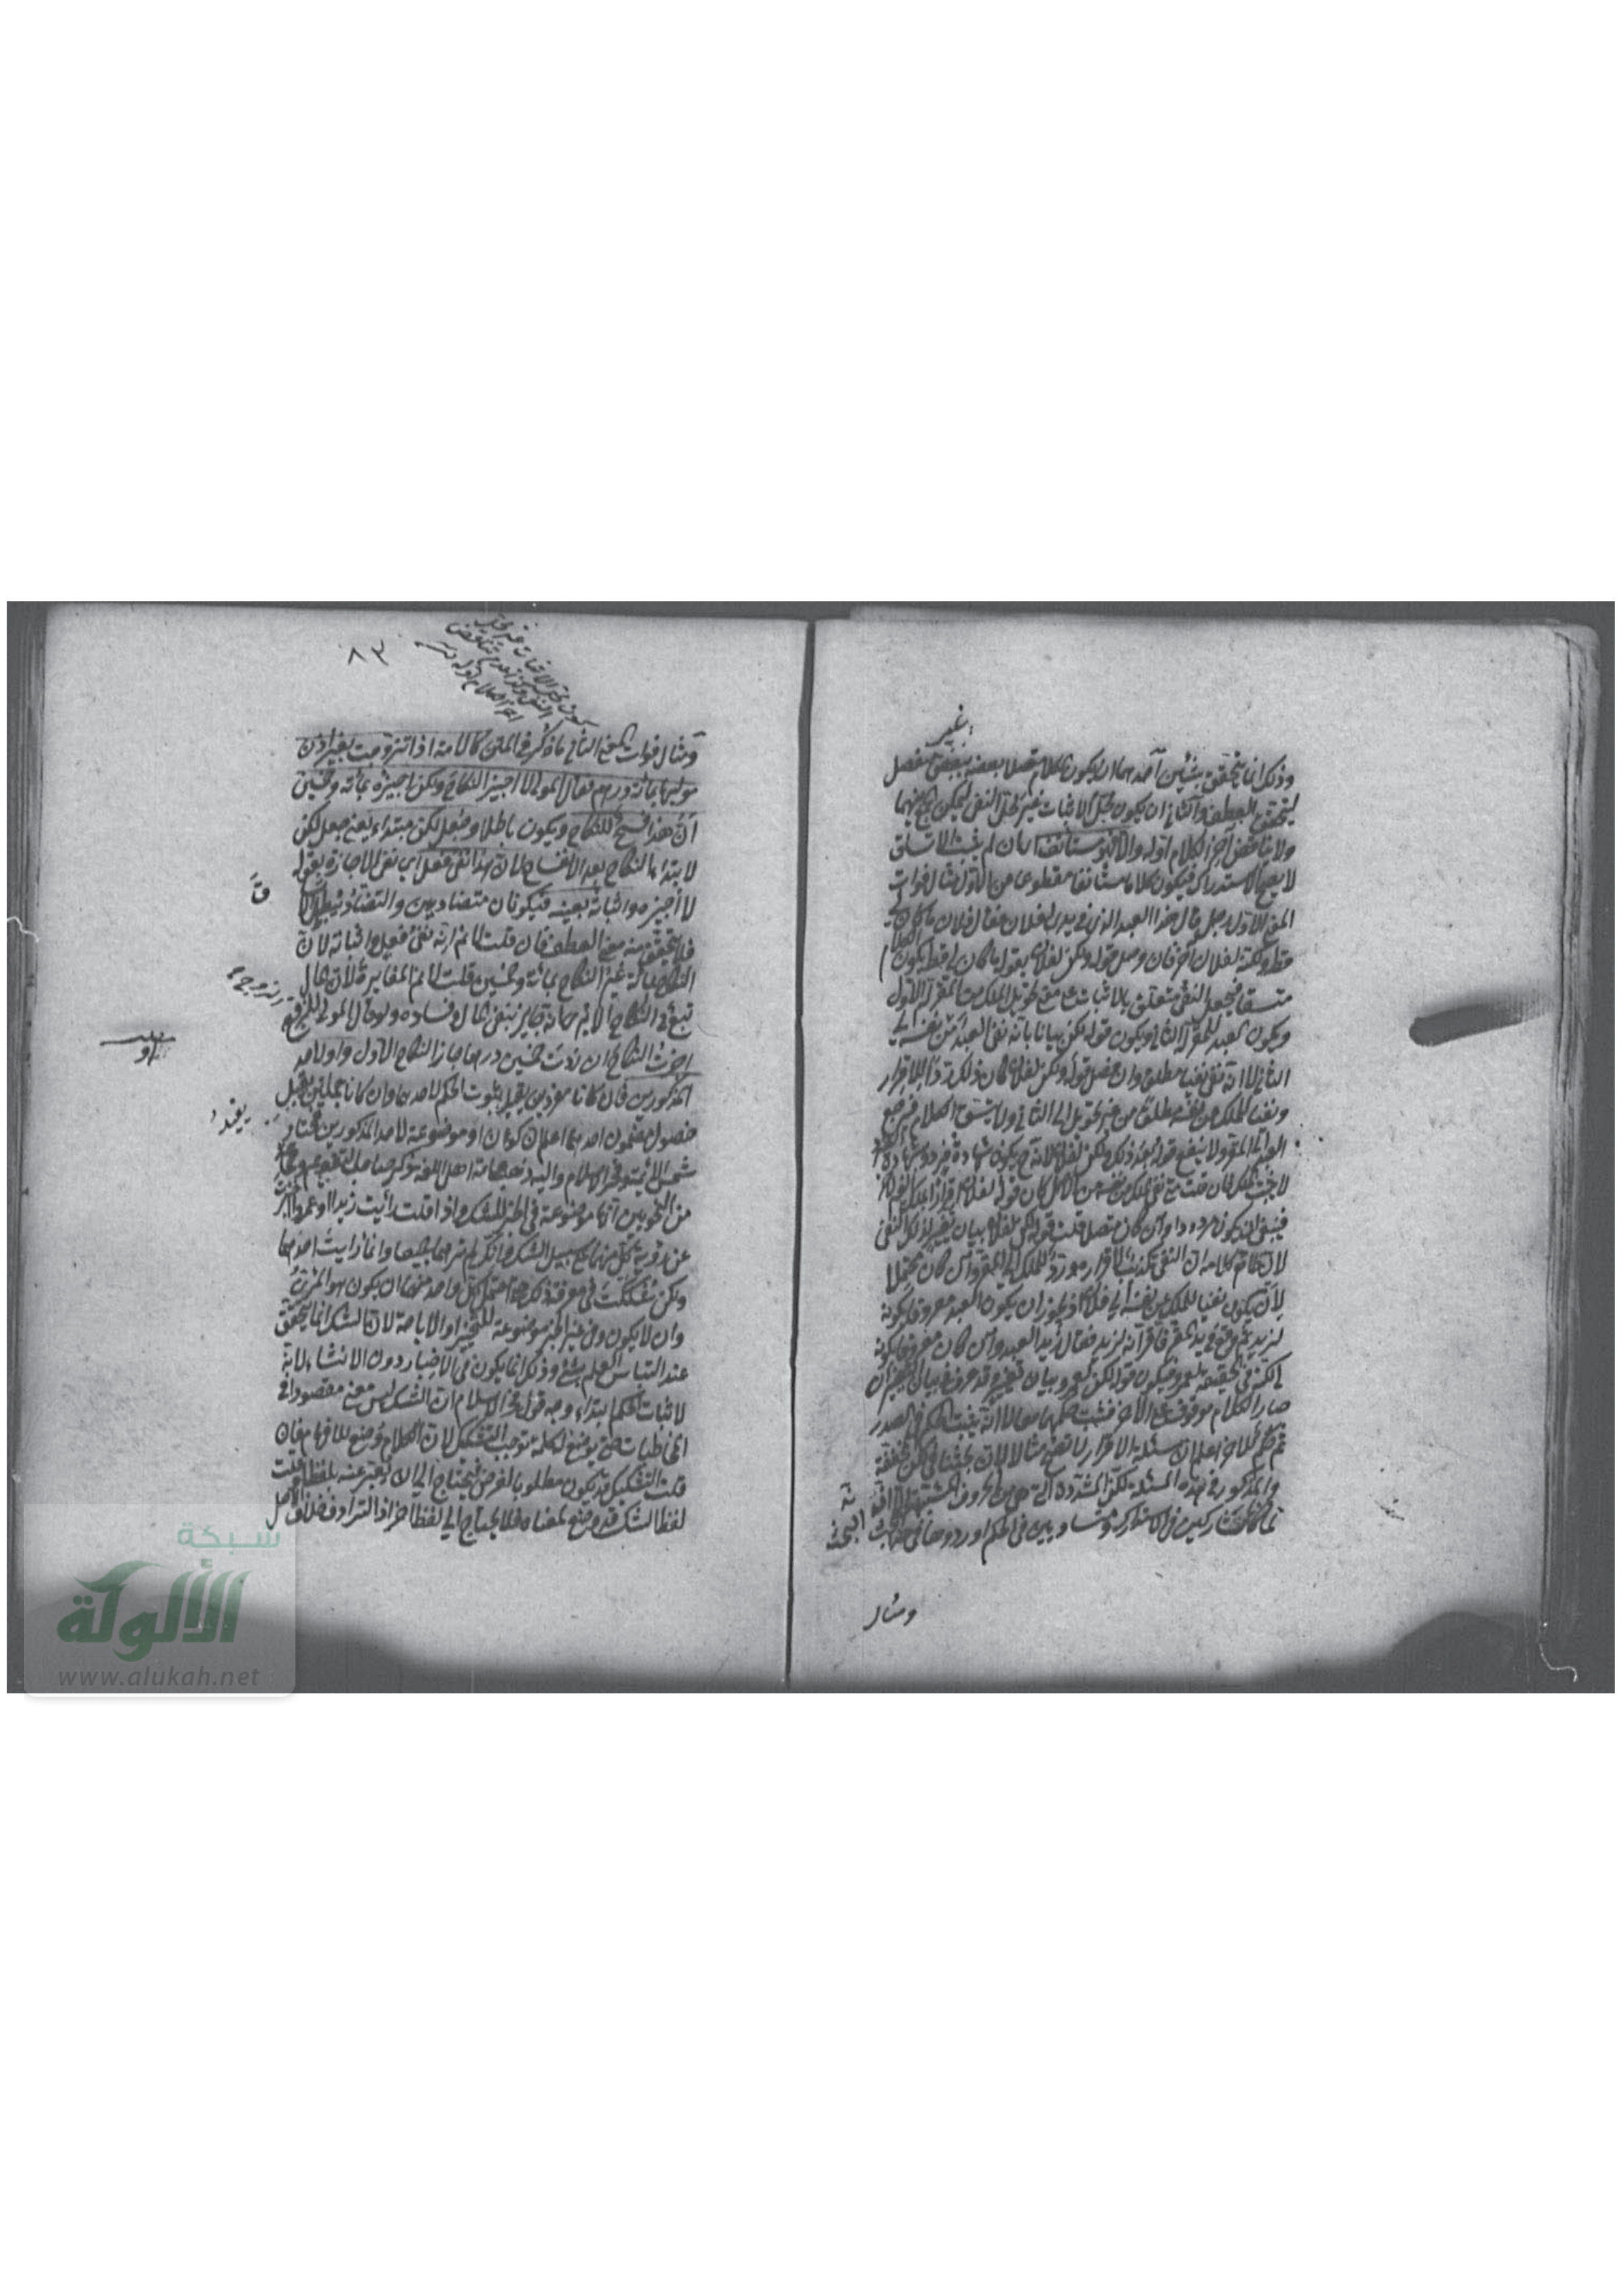 بغير
وذلك انما يتحقق بشيئين احدهما ان يكون الكلام متصلا بعضه ببعض منفصل
ليتحقق العطف والثاني ان يكون محل الاثبات غير محل النفي ليمكن الجمع بينهما
ولا يناقض آخر الكلام اوله والا فهو مستأنف اي ان لم يثبت الاتساق
لا يصح الاستدراك فيكون كلاما مستأنفا مقطوعا عن الاول مثال فوات
المعنى الاول رجل قال هذا العبد الذي في يدي لفلان فقال فلان ما كان لي
قط ولكنه لفلان آخر فان وصل قوله ولكن لفلان بقوله ما كان لي قط يكون الكلام
متسقا فيجعل النفي متعلق بالاثبات مع تحويل الملك عن المقر الاول
ويكون العبد للمقر الثاني ويكون قوله لكن بيانا بانه نفى العبد من نفسه الى
الثاني لا انه نفى نفيا مطلقا وان فصل قوله ولكن لفلان كان ذلك ردا للاقرار
ونفيا للملك عن نفسه مطلقا من غير تحويل الى الثاني ولا يتسق الكلام فيرجع
العبد الى المقر ولا ينفع قوله بعد ذلك ولكن لفلان لانه يكون شهادة فرد وشهادة
لا يثبت الملك فان قلت نفى الملك عن نفسه من الاصل كان قوله لفلان اقرارا بملك الغير
فينبغي ان يكون مردودا وان كان متصلا قلت قوله لكن لفلان بيان تغيير لذلك النفي
لان ظاهر كلامه ان النفي تكذيب للاقرار ورد للملك الى المقر وان كان محتملا
لان يكون نفيا للملك عن نفسه الى فلان اذ يجوز ان يكون العبد معروفا بكونه
لزيد ثم وقع في يد المقر فاقر انه لزيد فقال زيد العبد وان كان معروفا بكونه
لي لكنه في الحقيقة لعمرو فيكون قوله لكن لعمرو بيان تغيير وقد عرف في بيان التغيير ان
صدر الكلام موقوف على الآخر فيثبت حكمهما معا لا انه يثبت الحكم في الصدر
ثم حكم الآخر اعلم ان مسئلة الاقرار لا تصح مثالا لان بحثنا في لكن مخففة
والمذكور في هذه المسئلة لكن المشددة التي هي من الحروف المشبهة الا انه
لما كانتا متشاركتين في الاستدراك ومتساويتين في الحكم اوردوهما في هذا البحث
ومثال
٨٣
ومثال فوات المعنى الثاني ما ذكر في المتن كالامة اذا تزوجت بغير اذن
موليها بمائة درهم فقال المولى لا اجيز النكاح ولكن اجيزه بمائة وخمسين
ان هذا فسخ للنكاح ويكون باطلا وجعل لكن مبتداء يعني جعل لكن
لابتداء النكاح بعد الانفساخ لان هذا نفي فعل اي نفى الاجازة بقوله
لا اجيزه واثباته بعينه فيكونان متضادين والتضاد يبطل
فلا يتحقق منه معنى العطف فان قلت لا نم انه نفي فعل واثباته لان
النكاح بمائة غير النكاح بمائة وخمسين قلت لا نم المغايرة لان المال
تبع في النكاح الا ترى انه يجوز بنفي المال وفساده ولو قال المولى للزوج
اجزت النكاح ان زدت خمسين درهما جاز النكاح الاول واو لاحد
المذكورين فان كانا مفردين يفيد ثبوت الحكم لاحدهما وان كانا جملتين يفيد
حصول مضمون احدهما اعلم ان كون او موضوعة لاحد المذكورين مختار
شمس الائمة وفخر الاسلام واليه ذهب عامة اهل اللغة وذكر صاحب التقويم وجماعة
من النحويين انها موضوعة في الخبر للشك فاذا قلت رأيت زيدا او عمروا اخبرت
عن رؤية كل منهما على سبيل الشك فانك لم ترهما جميعا وانما رأيت احدهما
ولكن شككت في معرفة ذلك حتى احتمل كل واحد منهما ان يكون هو المرئي
وان لا يكون وفي غير الخبر موضوعة للتخيير او الاباحة لان الشك انما يتحقق
عند التباس العلم بشئ وذلك انما يكون في الاخبار دون الانشاء لانه
لاثبات الحكم ابتداء وجه قول فخر الاسلام ان الشك ليس معنى مقصودا في
المخاطبات حتى يوضع له كلمة توجب التشكيك لان الكلام وضع للافهام فان
قلت التشكيك قد يكون مطلوبا لغرض فيحتاج الى ان يعبر عنه بلفظ قلت
لفظ الشك قد وضع لمعناه فلا يحتاج الى لفظ آخر اذ الترادف خلاف الاصل
الزوج
او
يفيد
شبكة
الألوكة
www.alukah.net